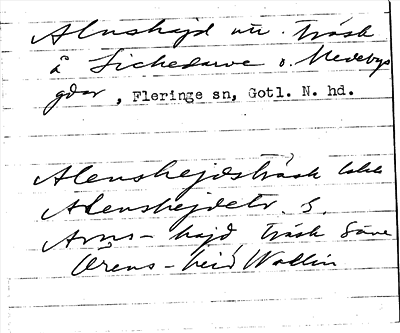 Alnshajd utt. träsk
å Sichedarve o. Medebys
gdar, Fleringe sn, Gotl. N. hd.
Alenshejdsträsk
Alenshejdetr. S.
Arns-hajd träsk Säve
Örens-heid Wallin